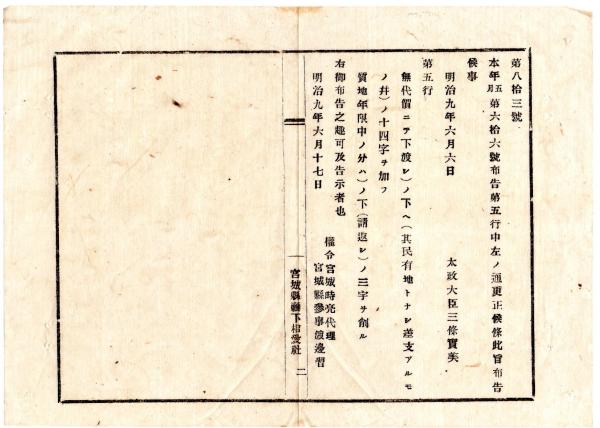 第八拾三號
本年五月第六拾六號布告第五行中左ノ通更正候條此旨布告
候事
明治九年六月六日
太政大臣三條實美
第五行
無代價ニテ下渡シ)ノ下ヘ(其民有地トナシ差支アルモ
ノ幷)ノ十四字ヲ加フ
質地年限中ノ分ハ)ノ下(請返シ)ノ三字ヲ削ル
右御布告之趣可及告示者也
明治九年六月十七日
權令宮城時亮代理
宮城縣參事渡邊習
宮城縣縣下相愛社
二